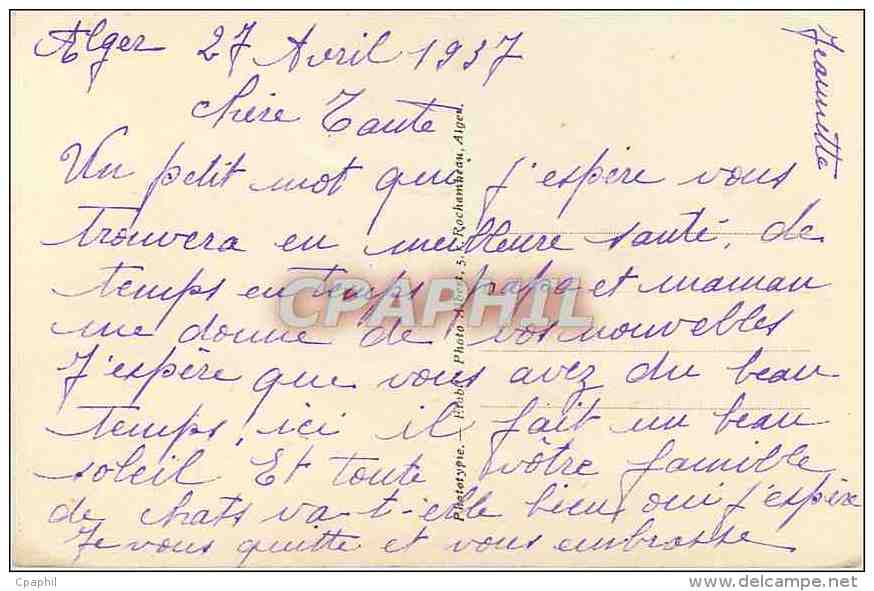 Alger 27 Avril 1937
Chère Tante
Un petit mot qui j'espère vous
trouvera en meilleure santé, de
temps en temps papa et maman
me donne de vos nouvelles
J'espère que vous avez du beau
temps, ici il fait un beau
soleil Et toute vôtre famille
de chats va-t-elle bien oui j'espère
Je vous quitte et vous embrasse
Jeannette
Phototypie. — Etabl. Photo Albert, 5, Rochambeau, Alger.
CPAPHIL
Cpaphil
www.delcampe.net